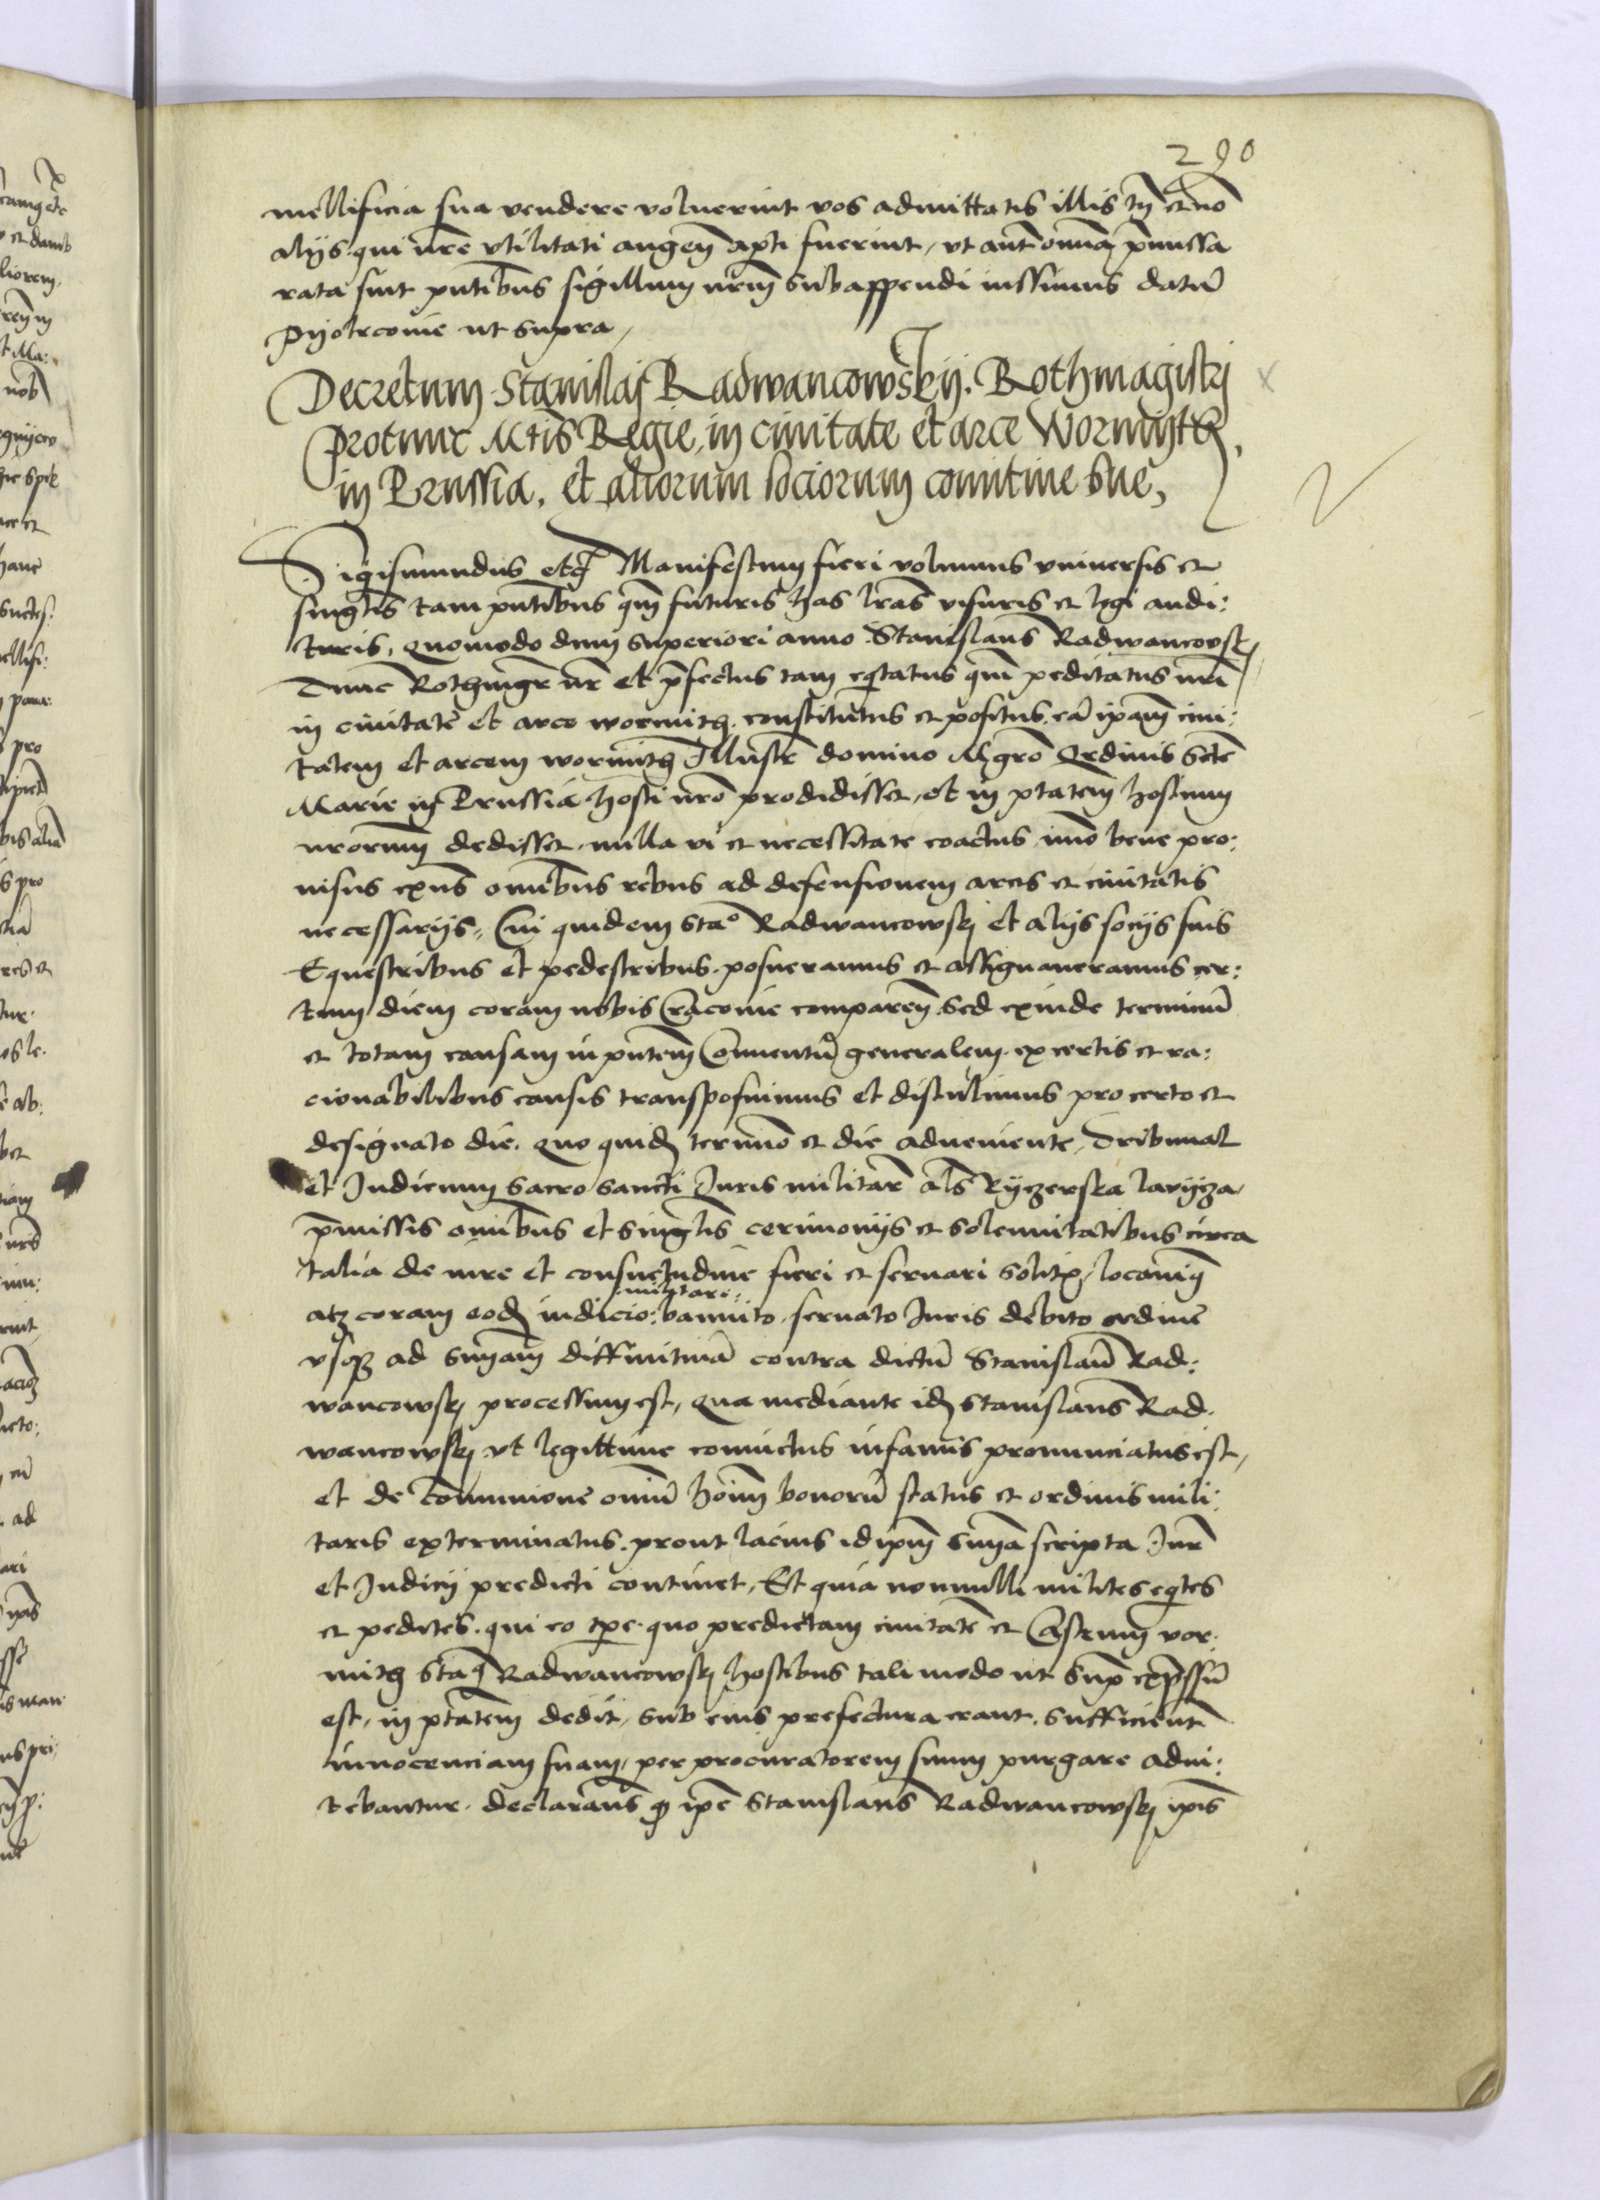 290
mellificia sua vendere voluerint vos admittatis illis tn̄ et nō
alijs qui nr̄e vtilitati augen̄ apti fuerint, vt aut̄ omnia p̄missa
rata sint pn̄tibus sigillum nr̄m subappendi iussimus datū
Pyotrcovie ut supra,
Decretum Stanislaj Radwancowskij Rothmagistrj
Protunc Mtis̄ Regie, in ciuitate et arce Wormdyth,
in Prussia, et aliorum sociorum comitiue sue,
Sigismundus etc̄ Manifestum fieri volumus vniuersis et
singl̄is tam pn̄tibus qm̄ futuris has lr̄as visuris et legi audi:
turis, quomodo dum superiori anno Stanislaus Radwancowskj
Tunc Rothmgr̄ nr̄ et p̄fectus tam eq̄tatus qm̄ peditatus nr̄i
in ciuitate et arce wormith, constitutus et positus, eā ip̄am ciui:
tatem et arcem wormith Illustr̄ domino Mgr̄o Ordinis Scte
Marie in Prussia hosti nr̄o prodidisset, et in ptātem hostium
nr̄orum dedisset, nulla vi et necessitate coactus imo bene pro:
uisus exn̄s omībus rebus ad defensionem arcis et ciuitatis
necessarijs, Cui quidem Sta° Radwancowskj et alijs socijs suis
Equestribus et pedestribus, posueramus et assignaueramus cer:
tum diem coram nobis Cracouie comparen̄ sed exinde terminū
et totam causam in pn̄tem Conuentū generalem ex certis et ra:
cionabilibus causis transposuimus et distulimus pro certo et
designato die, quo quidē termīo et die adueniente, Tribunal
et Judicium sacrosancti Juris militar̄ al̄s Rycerska lawycza
p̄missis omībus et singl̄is cerimonijs et solemnitatibus circa
talia de iure et consuetudine fieri et seruari solitis, locauimq̄
militari:
atq̄ coram eodē iudicio: bannito, seruato Juris debito ordine
vsq̄ ad sniam̄ diffinitiuā contra dictū Stanislaū Rad:
wancowskj processum est, qua mediante idē Stanislaus Rad:
wancowskj vt legittime conuictus infamis pronunciatus est,
et de communione omiū hoīm bonorū status et ordinis mili:
taris exterminatus, prout lacius id ipm̄ snīa scripta Jur̄
et Judicij predicti continet, Et quia nonnulli milites eq̄tes
et pedites, qui eo tp̄e quo predictam ciuitatē et Castrum wor:
mith Sta° Radwancowskj hostibus tali modo ut sup̄ exp̄ssū
est, in ptātem dedit, sub eius prefectura erant, sufficient̄
innocenciam suam, per procuratorem suum purgare admi:
tebantur, declaran̄s q̄ ip̄e Stanislaus Radwancowskj ip̄is